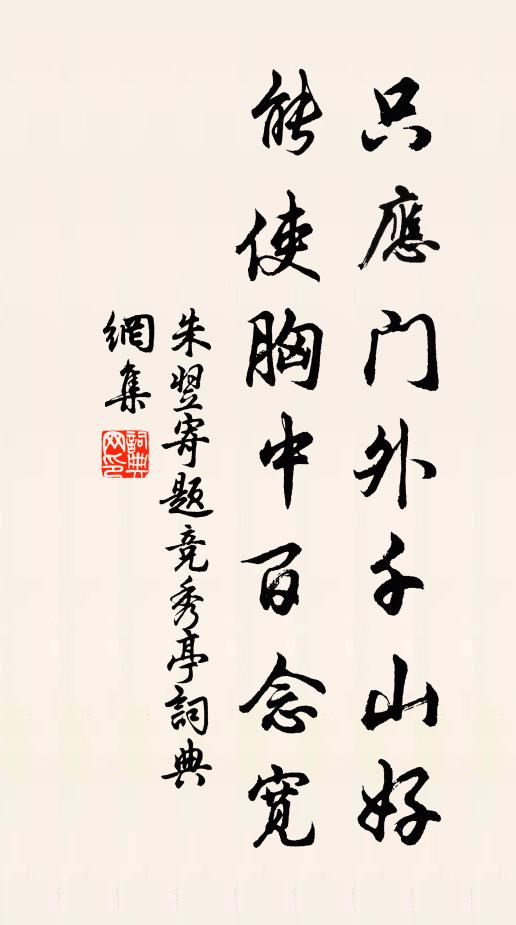 只應门外千山好
能使胸中百念寬
朱翌寄题竞秀亭詞典
網集
詞典
网印